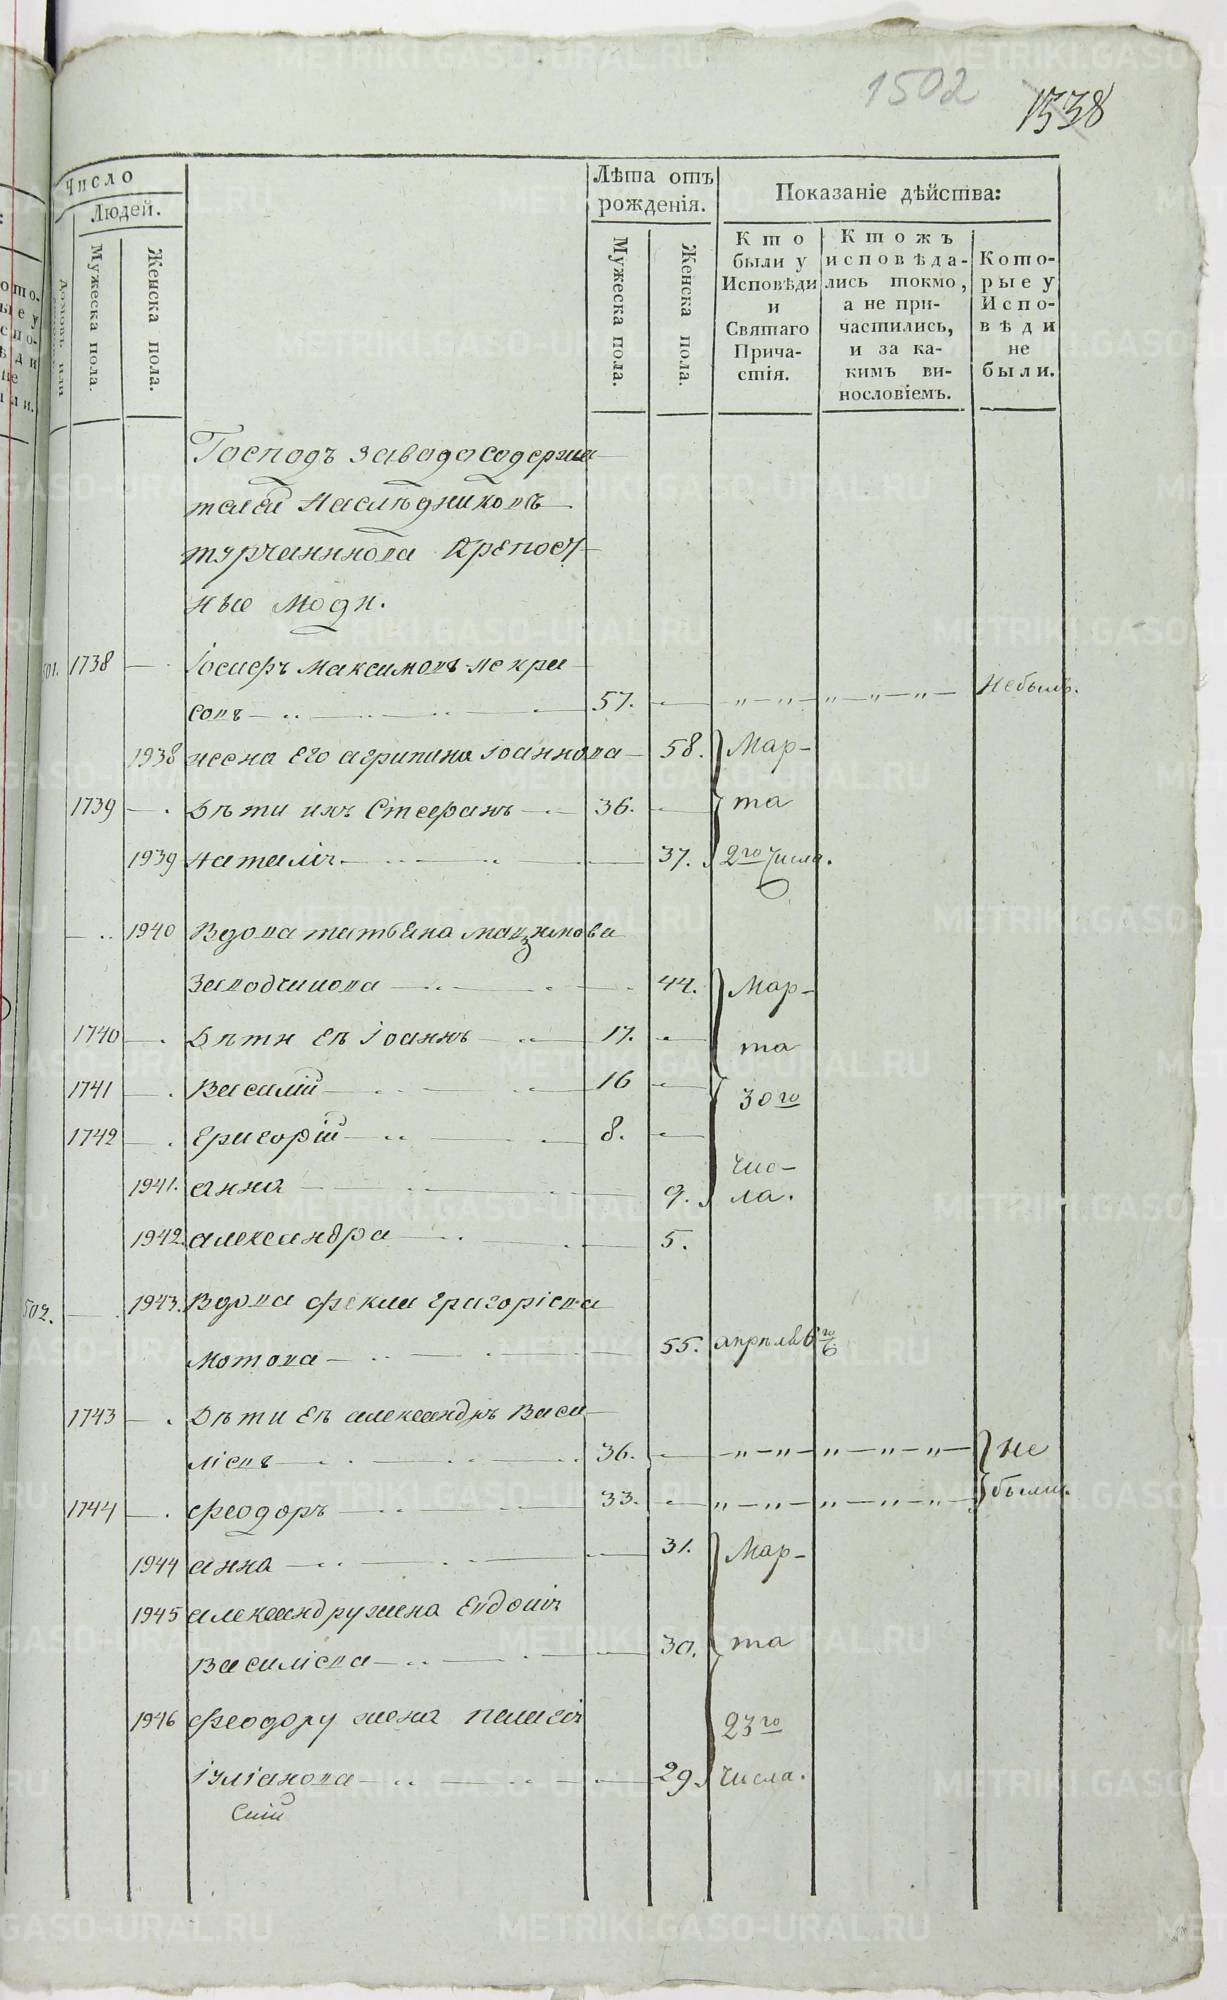 1502
1538
Число
Людей.
Мужеска пола.
Женска пола.
Лѣта отъ рожденія.
Мужеска пола.
Женска пола.
Показаніе дѣйства:
Кто были у Исповѣди и Святаго Причастія.
Ктожъ исповѣдались токмо, а не причастились, и за какимъ винословіемъ.
Которые у Исповѣди не были.
Господъ заводосодержа
телей наслѣдниковъ
турчанинова крепост
ные люди.
501. 1738 Іосифъ Максимовъ некра
совъ 57. Небылъ.
1938 жена его агрипина Іоаннова 58. Мар-
1739 Дѣти ихъ Стефанъ 36. та
1939 Наталія 37. 2го числа.
1940 Вдова татьяна максимова
44. Мар-
1740 Дѣти ея Іоаннъ 17. та
1741 Василій 16 30го
1742 Григорій 8.
чис-
1941. анна 9. ла.
1942. александра 5.
502. 1943. Вдова фекла григоріева
мотова 55. апрѣля 6го
1743 Дѣти ея александръ Васи
ліевъ 36. не
1744 феодоръ 33. были.
1944 анна 31. Мар-
1945 александру жена Евдокія
Василіева 30. та
1946 феодору жена пелагія
23го
іуліанова 29. числа.
Сій
METRIKI.GASO-URAL.RU